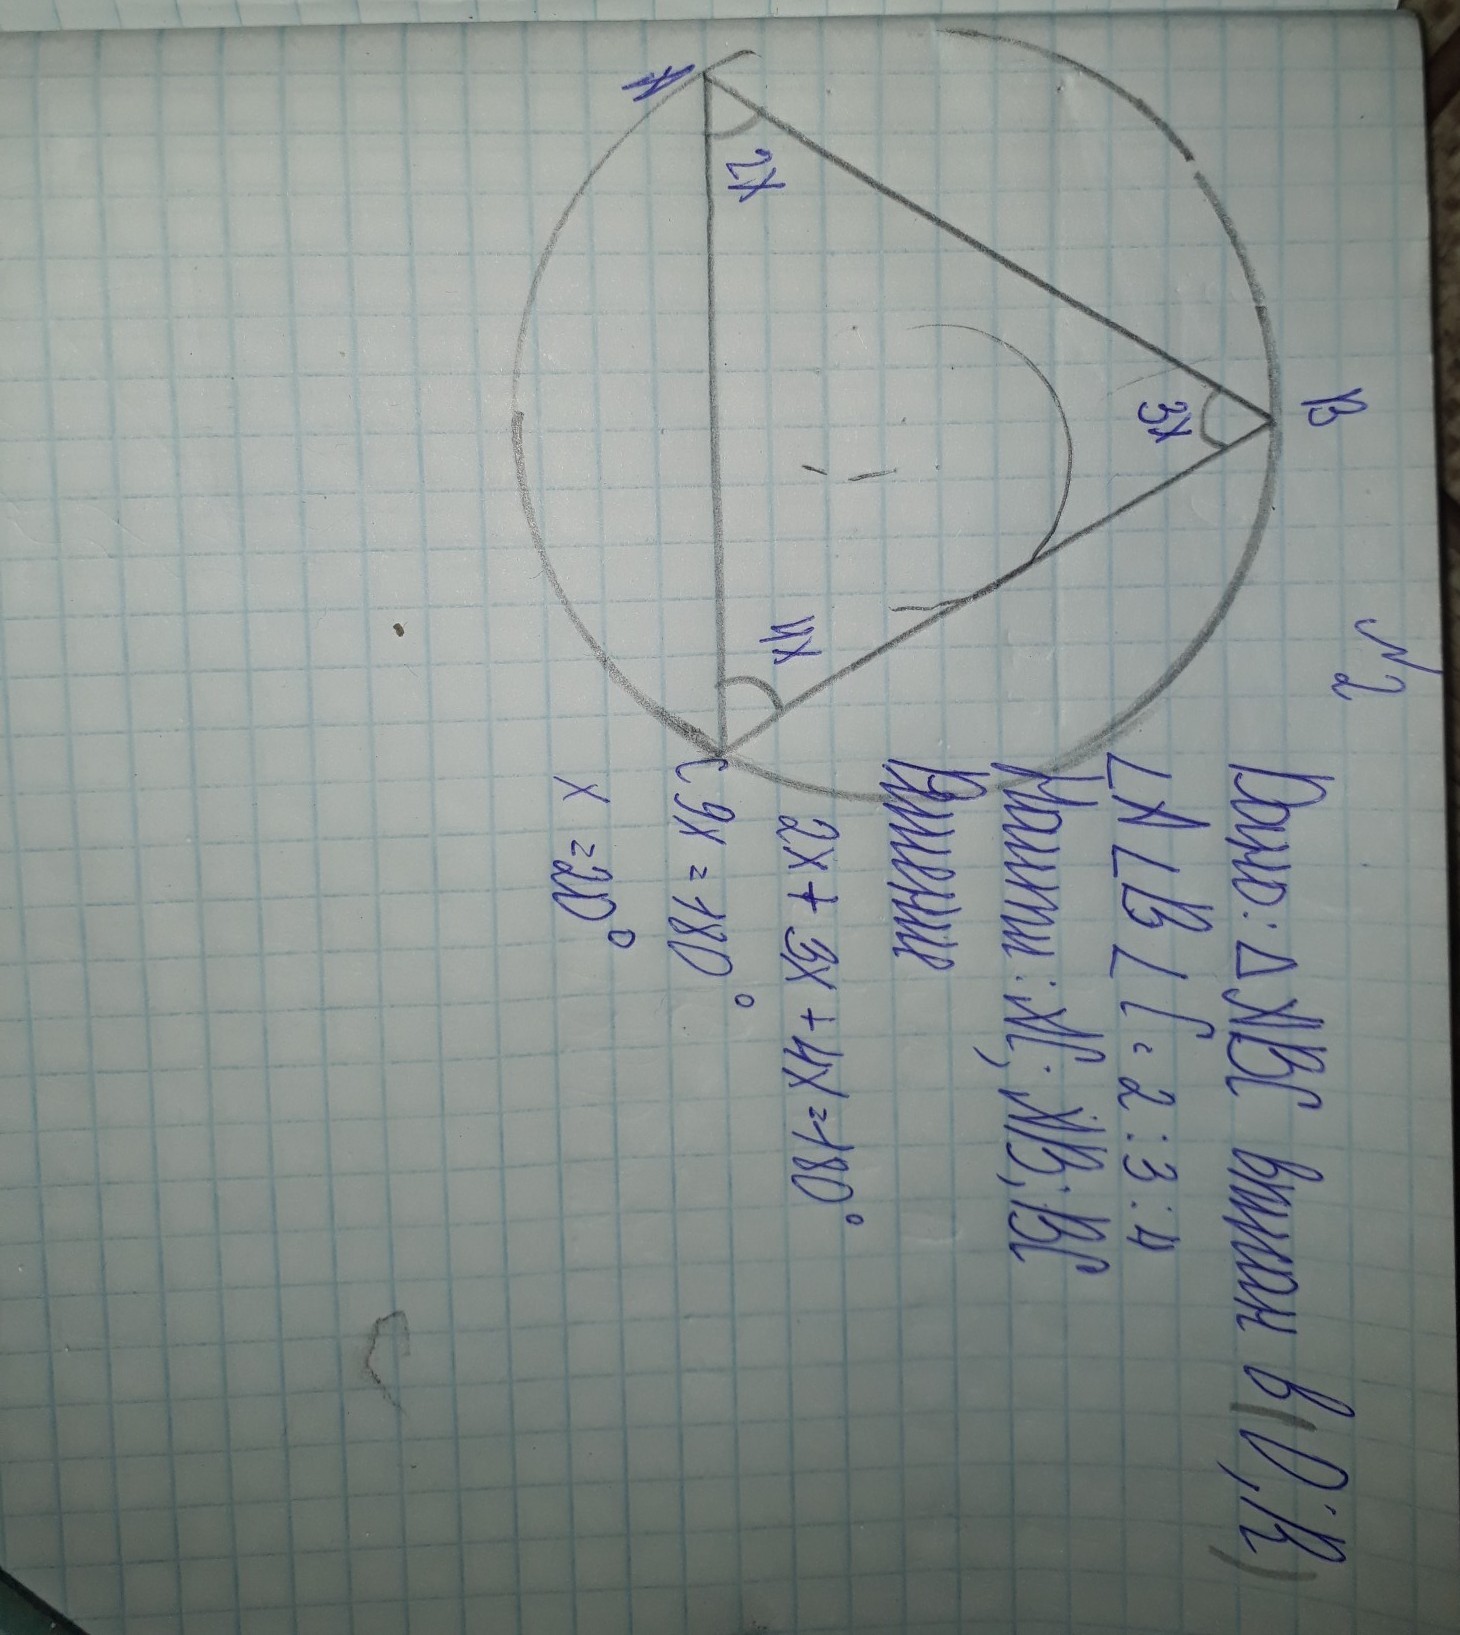 N2
Дано: △ABC вписан в (O; R)
∠A ∠B ∠C = 2 : 3 : 4
Найти: AC; AB; BC
Решение
2x + 3x + 4x = 180°
9x = 180°
x = 20°
A
B
C
2x
3x
4x